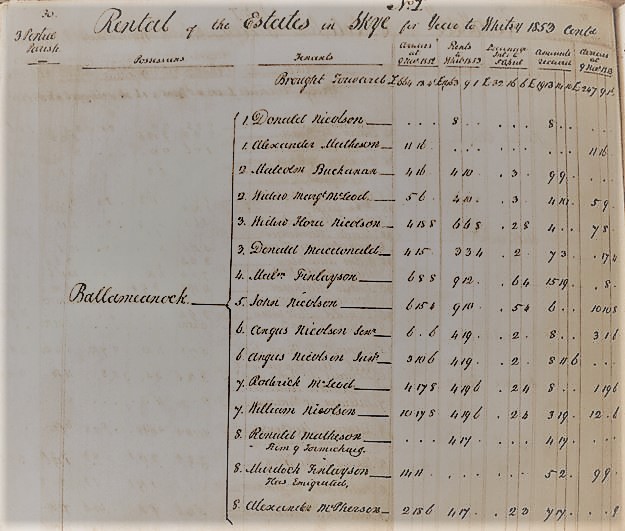 No. 1
30
Rental of the Estates in Skye for Year to Whity 1853 Contd
3. Portree Parish
Possessions Tenants Arrears at 9 Novr 1852 Rents to Whity 1853 Amounts received Arrears at
Brought Forward £
1. Donald Nicolson . . . 8 . . . . . 8 . . . . .
1. Alexander Matheson 11 16 . . . . . . . . . . 11 16 .
2. Malcolm Buchanan 4 16 . 4 10 . . 3 . 9 9 . . . .
2. Widow Margt McLeod 5 6 . 4 10 . . 3 . 4 10 . 5 9 .
3. Widow Flora Nicolson 4 18 8 6 6 8 . 2 8 4 . . 7 8 .
3. Donald Macdonald 4 15 . 3 3 4 . 2 . 7 3 . . 17 4
4. Malm Finlayson 6 8 8 9 12 . . 6 4 15 19 . . 8 .
Ballameanock
5. John Nicolson 6 15 4 9 10 . . 5 4 6 . . 10 10 8
6. Angus Nicolson Senr 6 . 6 4 19 . . 2 . 8 . . 3 1 6
6 Angus Nicolson Junr 3 10 6 4 19 . . 2 . 8 11 6
7. Roderick McLeod 4 17 8 4 19 6 . 2 4 8 . . 1 19 6
7. William Nicolson 10 17 8 4 19 6 . 2 4 3 19 . 12 . 6
8. Ronald Matheson . . . 4 17 . . . . 4 17 . . . .
8. Murdoch Finlayson 14 11 . . . . . . . 5 2 . 9 9 .
Has Emigrated,
8. Alexander McPherson 2 18 6 4 17 . . 2 3 7 17 . . . 9